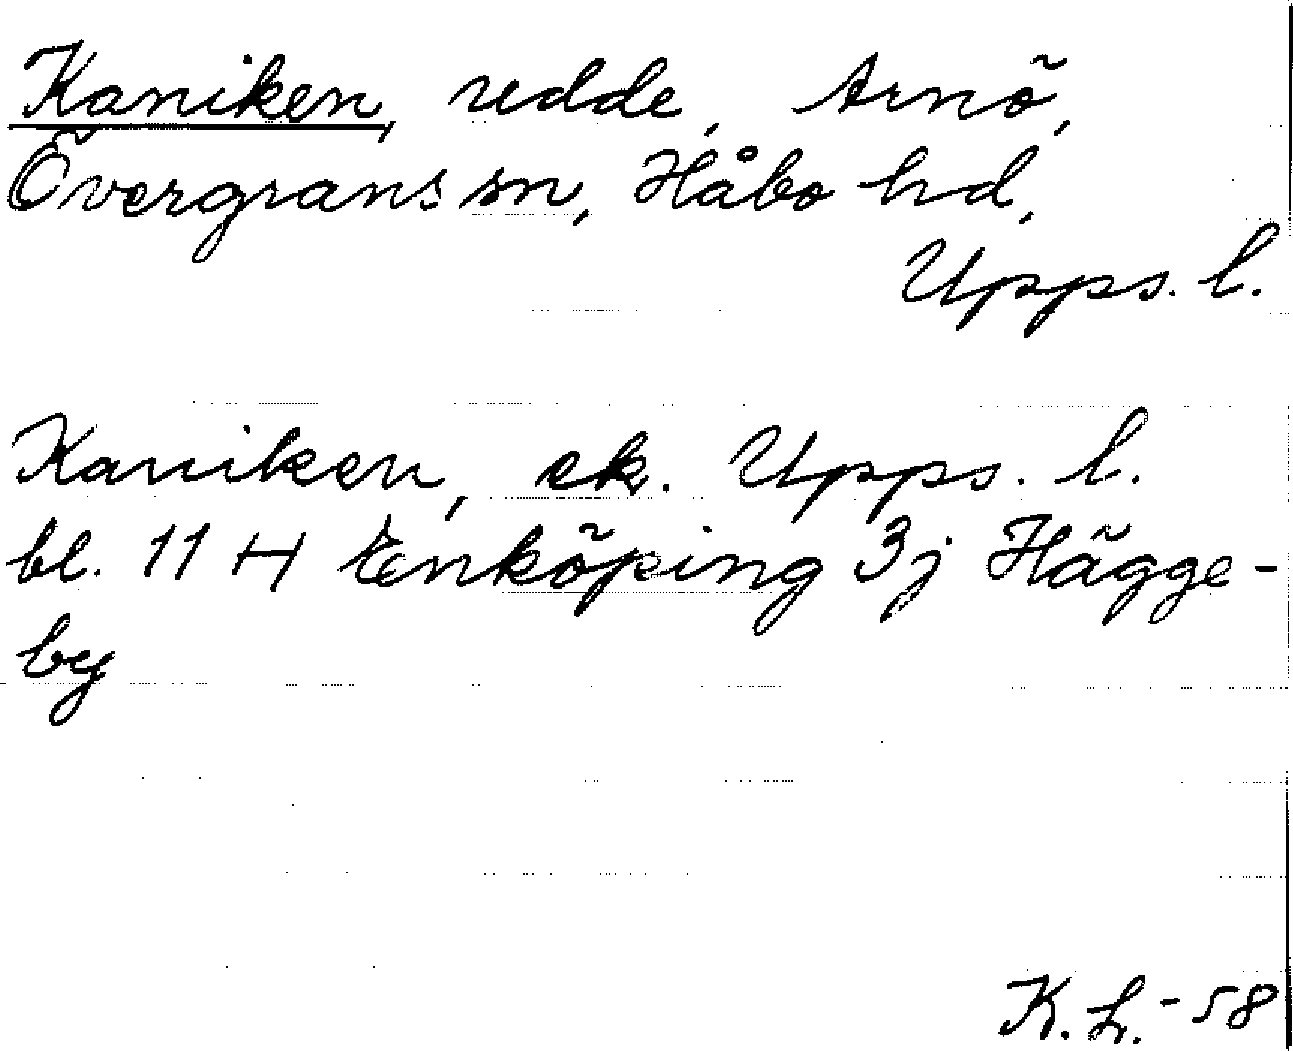 Kaniken, udde, Arnö,
Övergrans sn, Håbo hd,
Upps. l.
Kaniken, ek. Upps. l.
bl. 11 H Enköping 3j Hägge-
by
K. L. - 58